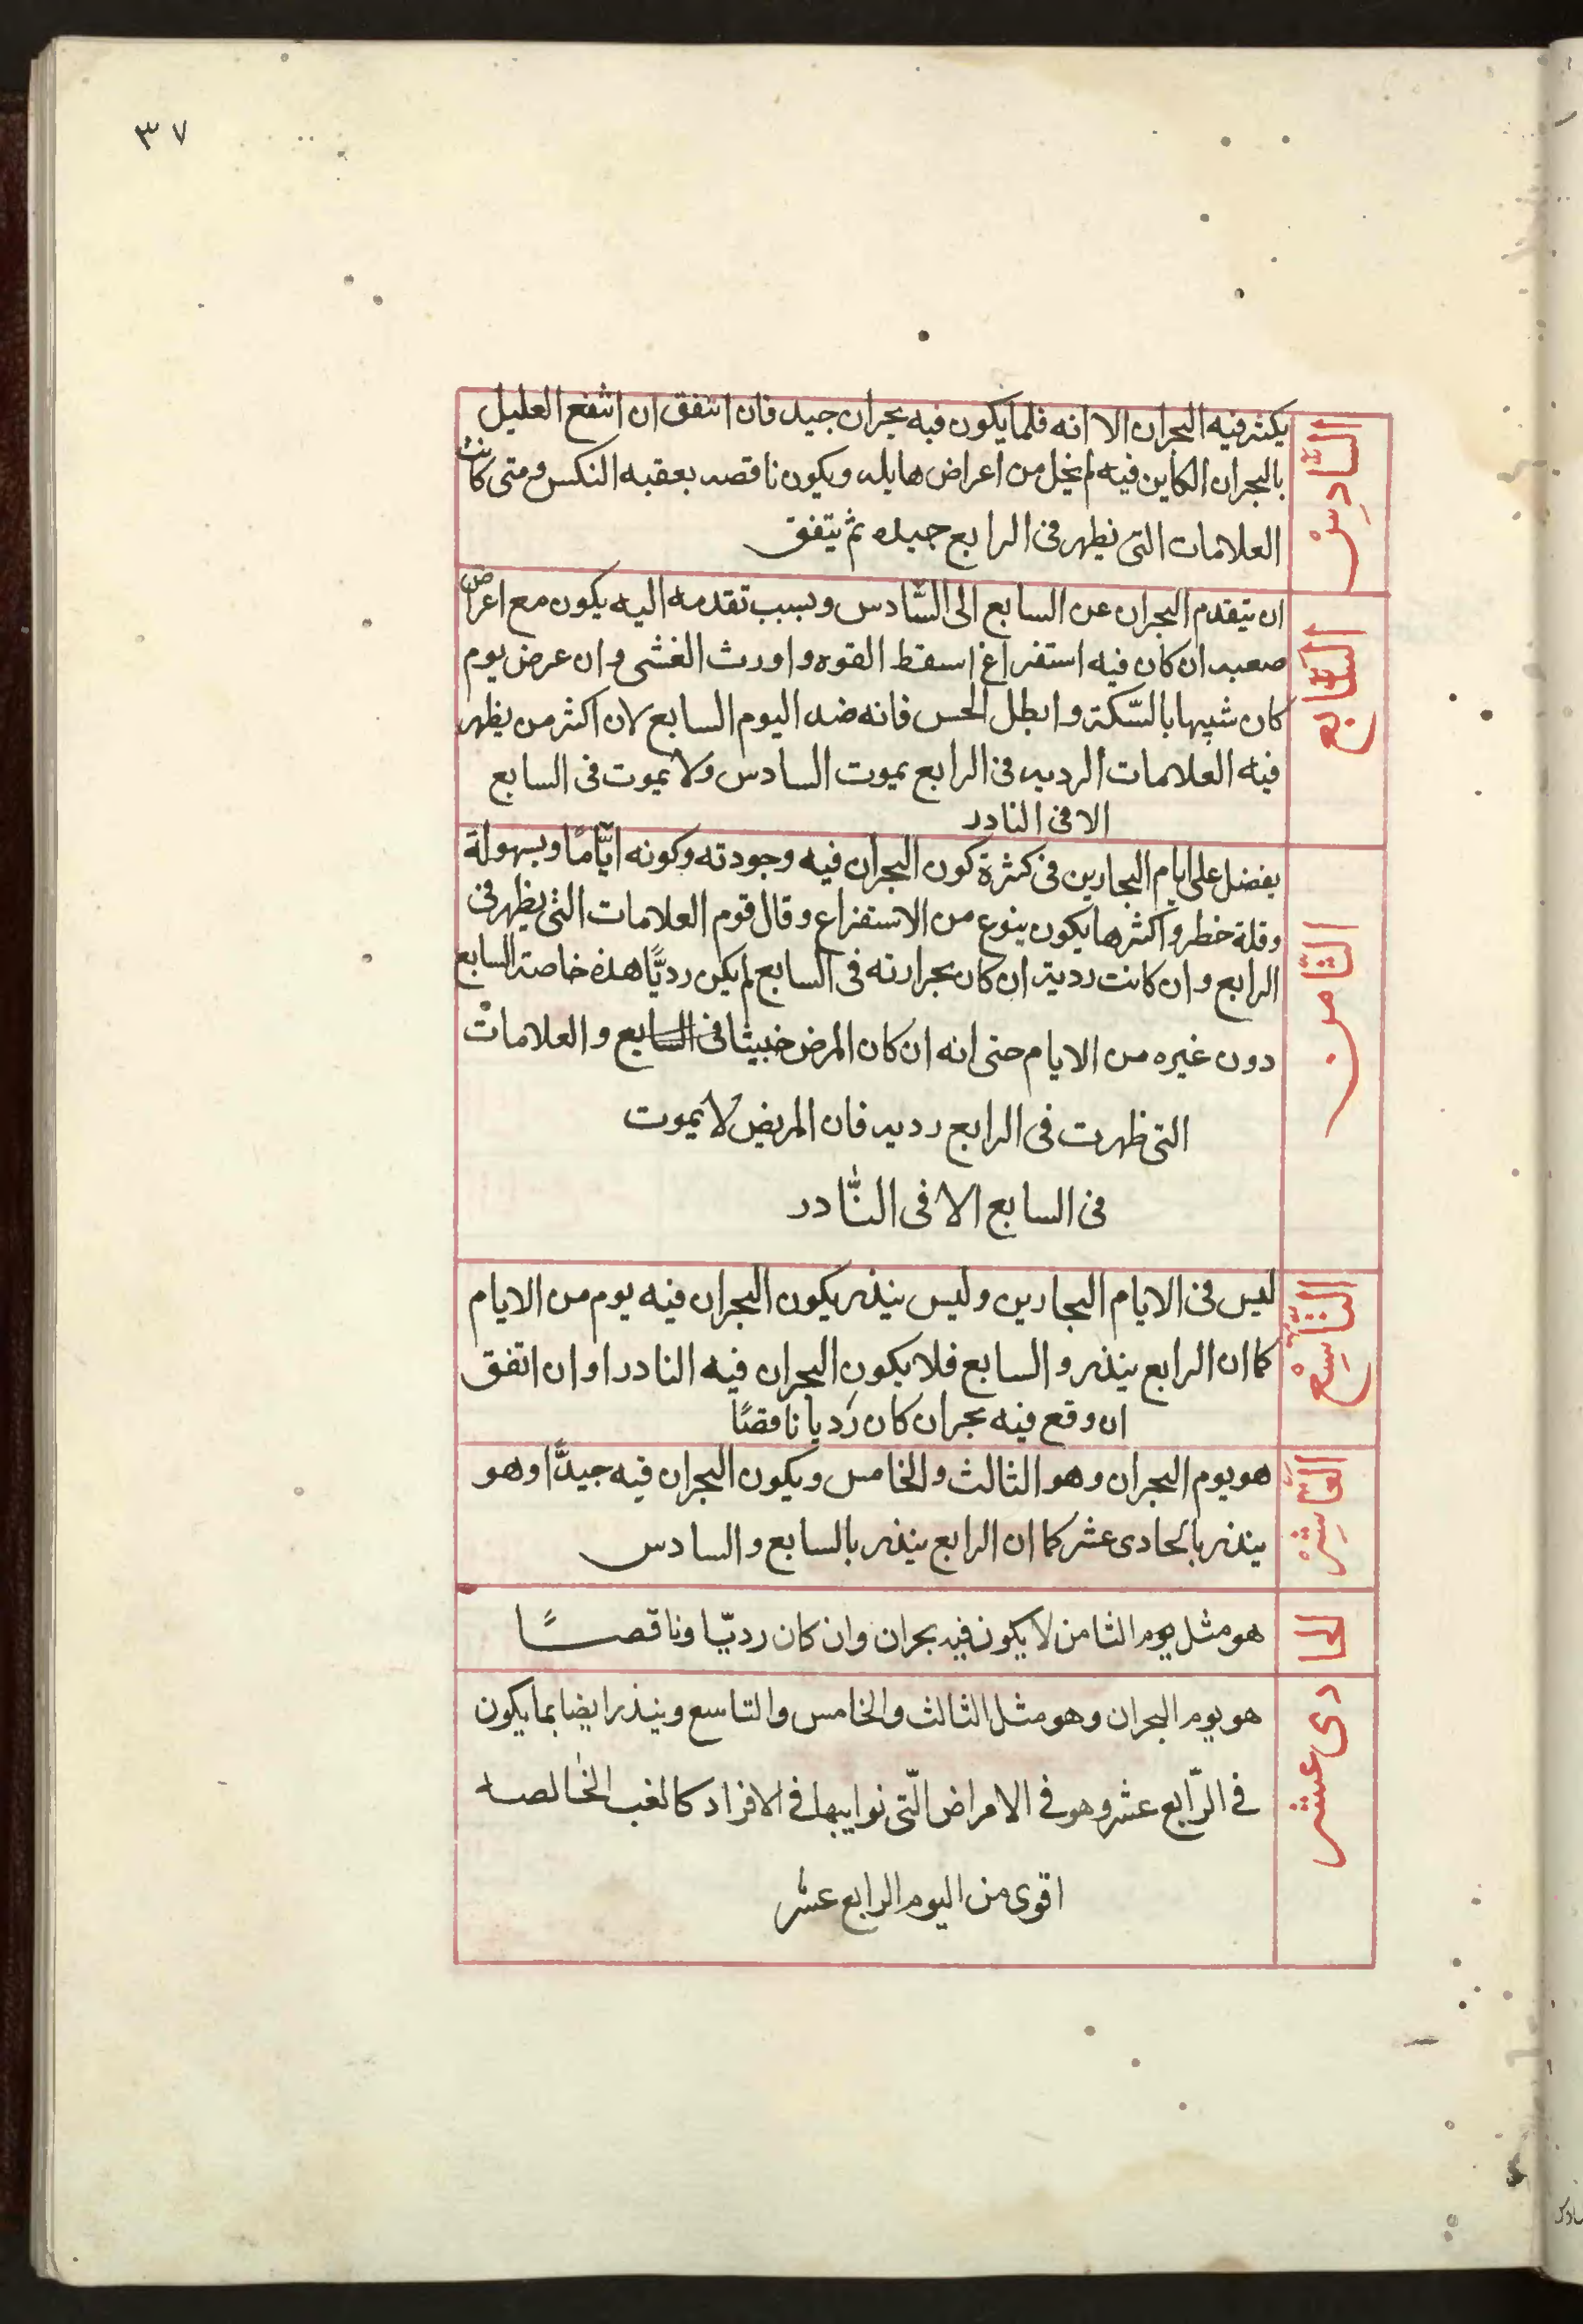 ٣٧
السَّادِسْ
يكثر فيه البحران الا انه فلما يكون فيه بحران جيد فان اتفق ان انتفع العليل
بالبحران الكاين فيه لم يخل من اعراض هايله ويكون ناقصه بعقبه النكس ومتى كانت
العلامات التى يظهر فى الرابع جيده ثم يتفق
السَّابع
ان يتقدم البحران عن السابع الى السَّادس وبسبب تقدمه اليه يكون مع اعراض
صعبه ان كان فيه استفراغ اسقط القوه واورث الغشى وان عرض يوم
كان شبيها بالسّكتة وابطل الحس فانه ضد اليوم السابع لان اكثر من يظهر
فيه العلامات الرديه فى الرابع يموت السادس ولا يموت فى السابع
الا فى النادر
الثَّامن
يفضل على ايام البحارين فى كثرة كون البحران فيه وجودته وكونه ايَّامًا وبسهولة
وقلة خطر واكثرها يكون بنوع من الاستفراع وقال قوم العلامات التى يظهر فى
الرابع وان كانت ردية ان كان بحرارته فى السابع لم يكن رديًّا هذه خاصة السابع
دون غيره من الايام حتى انه ان كان المرض خبيثا فى السابع والعلامات
التى ظهرت فى الرابع رديه فان المريض لا يموت
فى السابع الا فى النَّادر
التَّاسِعْ
ليس فى الايام البحارين وليس ينذر يكون البحران فيه يوم من الايام
كما ان الرابع ينذر والسابع فلا يكون البحران فيه النادر او ان اتفق
ان وقع فيه بحران كان رديا ناقصًا
العَاشِرْ
هو يوم البحران وهو الثالث والخامس ويكون البحران فيه جيدًّا وهو
ينذر بالحادى عشر كما ان الرابع ينذر بالسابع والسادس
الحا
هو مثل يوم الثامن لا يكون فيه بحران وان كان رديّا وناقصًا
دى عشر
هو يوم البحران وهو مثل الثالث والخامس والتاسع وينذر ايضا بما يكون
فى الرّابع عشر وهو فى الامراض الّتى نوايبها فى الافراد كالغب الخالصه
اقوى من اليوم الرابع عشر